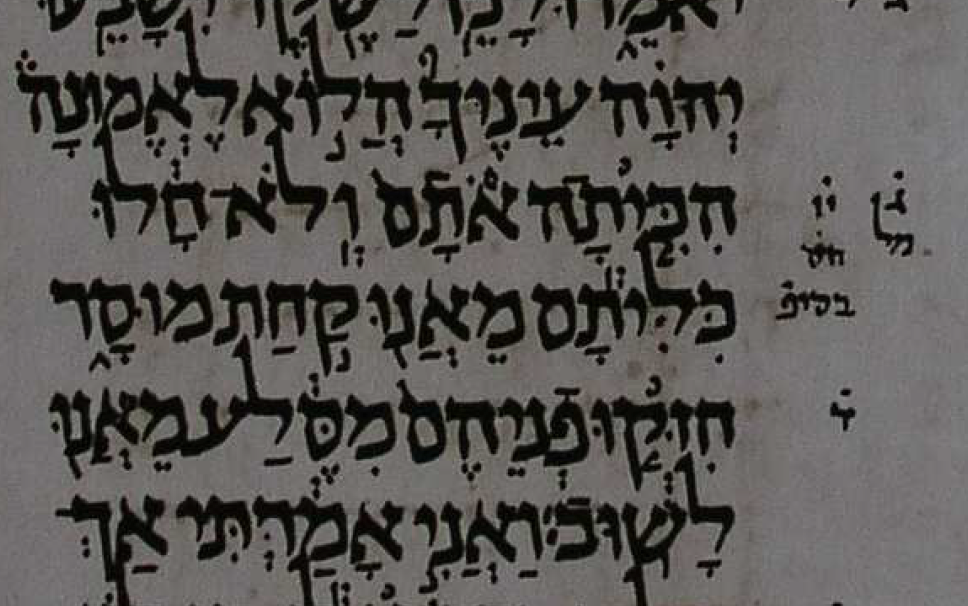 יֹאמֵרוּ לָכֵן לַשֶּׁקֶר יִשָּׁבֵעוּ
יְהוָה עֵינֶיךָ הֲלוֹא לֶאֱמוּנָה
הִכִּיתָה אֹתָם וְלֹא־חָלוּ
כִּלִּיתָם מֵאֲנוּ קַחַת מוּסָר
חִזְּקוּ פְנֵיהֶם מִסֶּלַע מֵאֲנוּ
לָשׁוּב׃ וַאֲנִי אָמַרְתִּי אַךְ
ג
מל
יו
חס
בליפ
ד